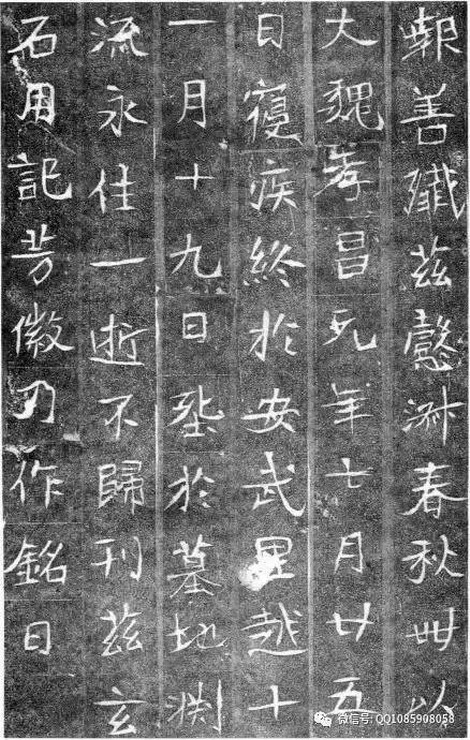 報善殲茲懿淑春秋卌以
大魏孝昌元年七月廿五
日寑疾終於安武里越十
一月十九日塟於墓地渕
流永住一逝不歸刊茲玄
石用記芳徽乃作銘曰
微信号: QQ1085908058